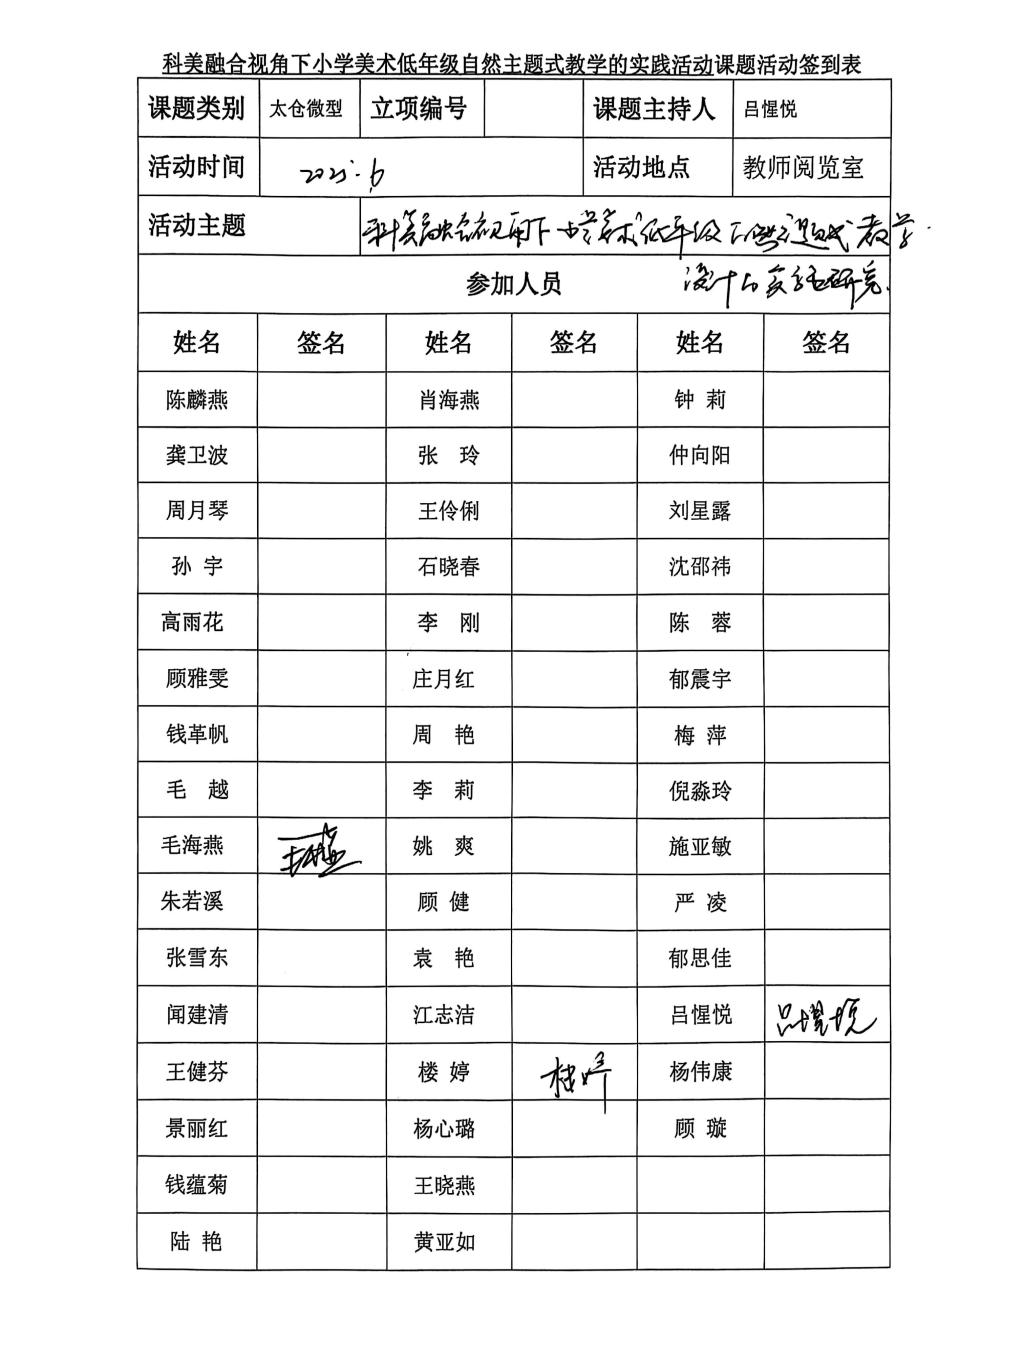 科美融合视角下小学美术低年级自然主题式教学的实践活动课题活动签到表
课题类别 太仓微型 立项编号 课题主持人 吕惺悦
活动时间 2025.6 活动地点 教师阅览室
活动主题 科美融合视角下小学美术低年级自然主题式教学
设计与实践研究.
参加人员
姓名 签名 姓名 签名 姓名 签名
陈麟燕 肖海燕 钟 莉
龚卫波 张 玲 仲向阳
周月琴 王伶俐 刘星露
孙 宇 石晓春 沈邵祎
高雨花 李 刚 陈 蓉
顾雅雯 庄月红 郁震宇
钱革帆 周 艳 梅 萍
毛 越 李 莉 倪淼玲
毛海燕 毛海燕 姚 爽 施亚敏
朱若溪 顾 健 严 凌
张雪东 袁 艳 郁思佳
闻建清 江志洁 吕惺悦 吕惺悦
王健芬 楼 婷 楼婷 杨伟康
景丽红 杨心璐 顾 璇
钱蕴菊 王晓燕
陆 艳 黄亚如